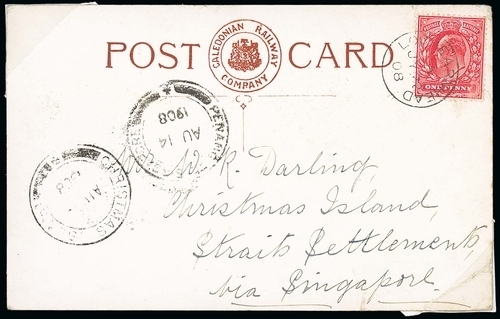 POST CARD
CALEDONIAN RAILWAY
COMPANY
ONE PENNY
08
PENANG
AU 14
1908
CHRISTMAS
AU
R. Darling,
Christmas Island,
Straits Settlements,
via Singapore.